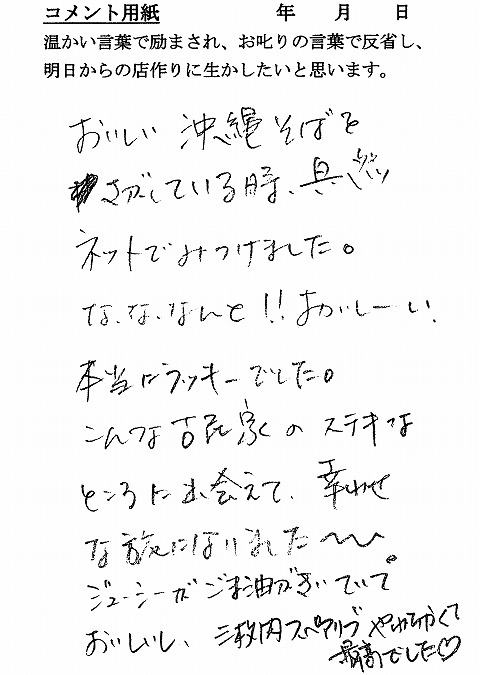 コメント用紙　年　月　日
温かい言葉で励まされ、お叱りの言葉で反省し、
明日からの店作りに生かしたいと思います。
おいしい 沖縄そばを
さがしている時、具志
ネットでみつけました。
な、な、なんと!! おいしーい。
本当にラッキーでした。
こんな古民家の ステキな
ところに出会えて、幸わせ
な旅になりました〜〜。
ジューシーがごま油がきいていて
おいしいし、三枚肉スペアリブ やわらかくて
最高でした♡